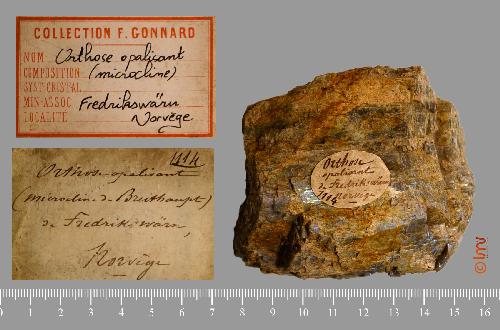 COLLECTION F. GONNARD
NOM Orthose opalisant
COMPOSITION (microcline)
SYST. CRISTAL.
MIN. ASSOC. Fredrikswärn
LOCALITÉ Norvège
1114
Orthose opalisant
(microclin de Breithaupt)
de Fredrikswärn,
Norvège
Orthose
opalisant
de Fredrikswärn
1114 Norvège
© lmv
0 1 2 3 4 5 6 7 8 9 10 11 12 13 14 15 16